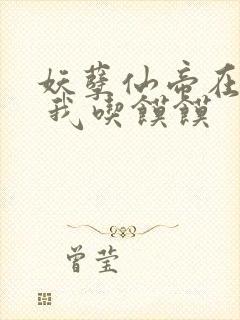 妖孽仙帝在
我喫饃饃
曾莹